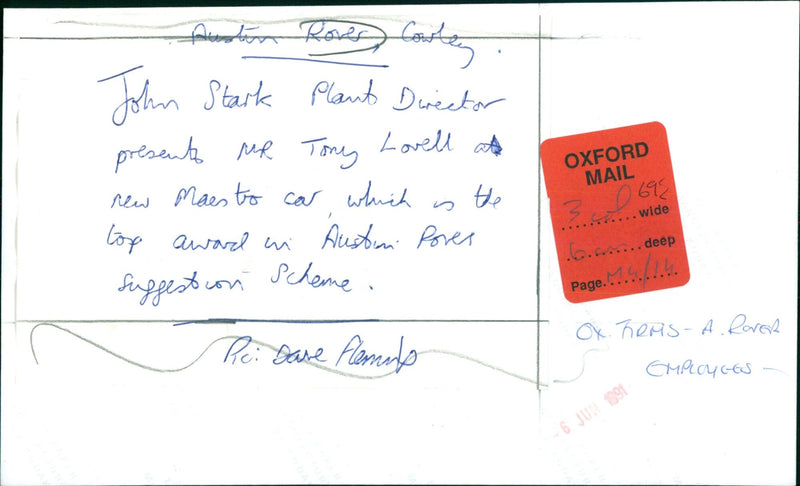 Austin Rover, Cowley.
John Stark Plant Director
presents MR Tony Lovell a
new Maestro car, which is the
top award in Austin Rover
Suggestion Scheme.
Pic: Dave Fleming
OXFORD
MAIL
69%
3 col wide
6 cm deep
Page M4/14
OX. FIRMS - A. ROVER
EMPLOYEES -
6 JUN 1991